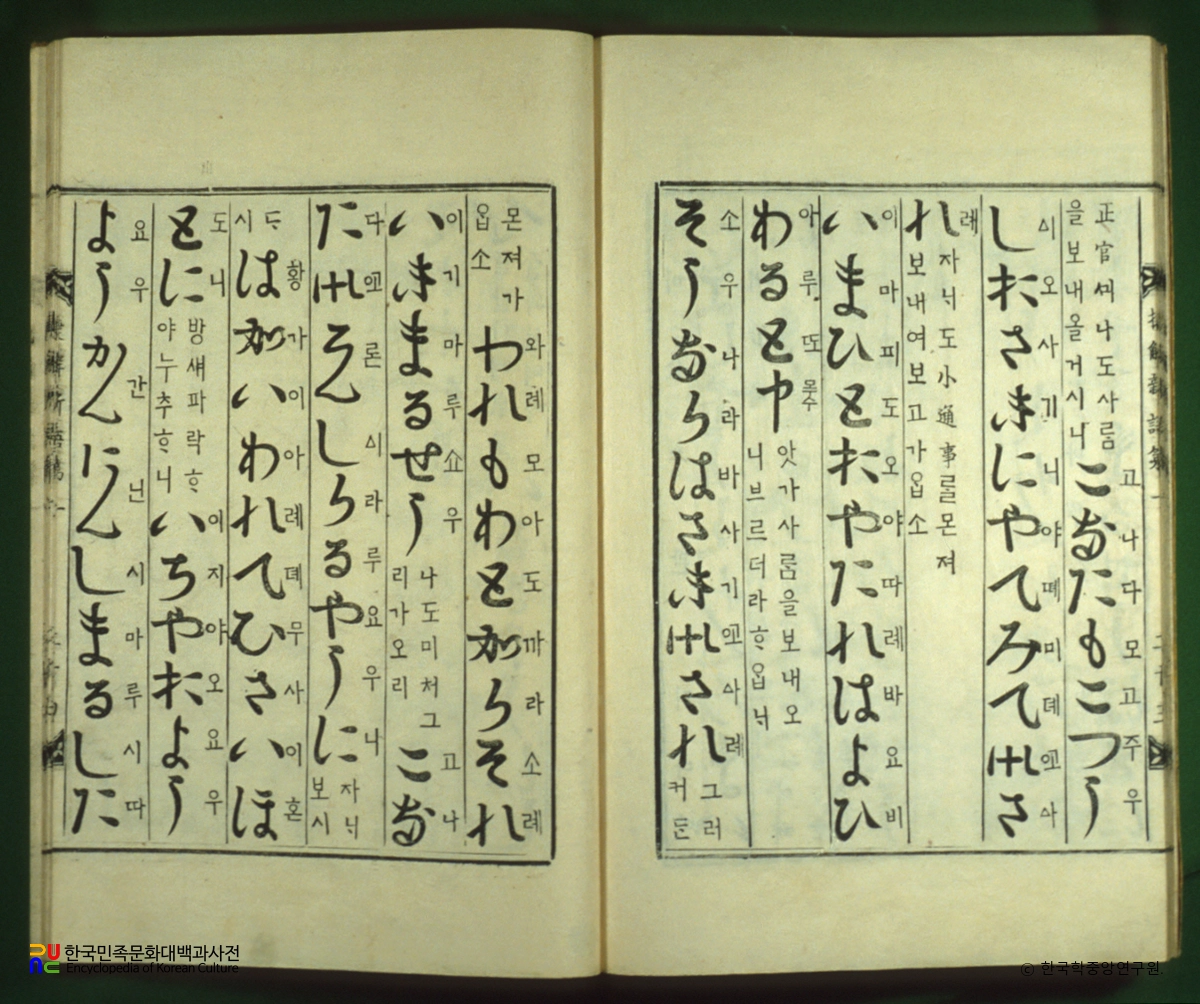 捷解新語第一
正官씌나도사룸
을보내올거시니
こなたもこつう
고나다모고주우
しおさきにやてみて申さ
시오사기니야뎨미뎨 아
れ
례
자늬도小通事를몬져
보내여보고가옵소
いまひとおやたれはよひ
이마피도오야따례바요비
わると申
아루또
앗가사룸을보내오
니브르더라ᄒᆞ옵늬
そうならはさき申され
소우나라바사기 아례
그러
커든
몬져가
옵소
われもわとからそれ
와례모아도까라소례
いきまるせう
이기마루쇼우
나도미처그
리가오리
こな
고나
た申そんしらるやうに
다 론시라루요우니
자늬
보시
드
시
はかいわれてひさいほ
황가이아례뎨무사이혼
とに
도니
방새파락ᄒᆞ
야누추ᄒᆞ니
いちやおよう
이지야오요우
ようかんにんしまるした
요우간닌시마루시따
한국민족문화대백과사전
Encyclopedia of Korean Culture
© 한국학중앙연구원.